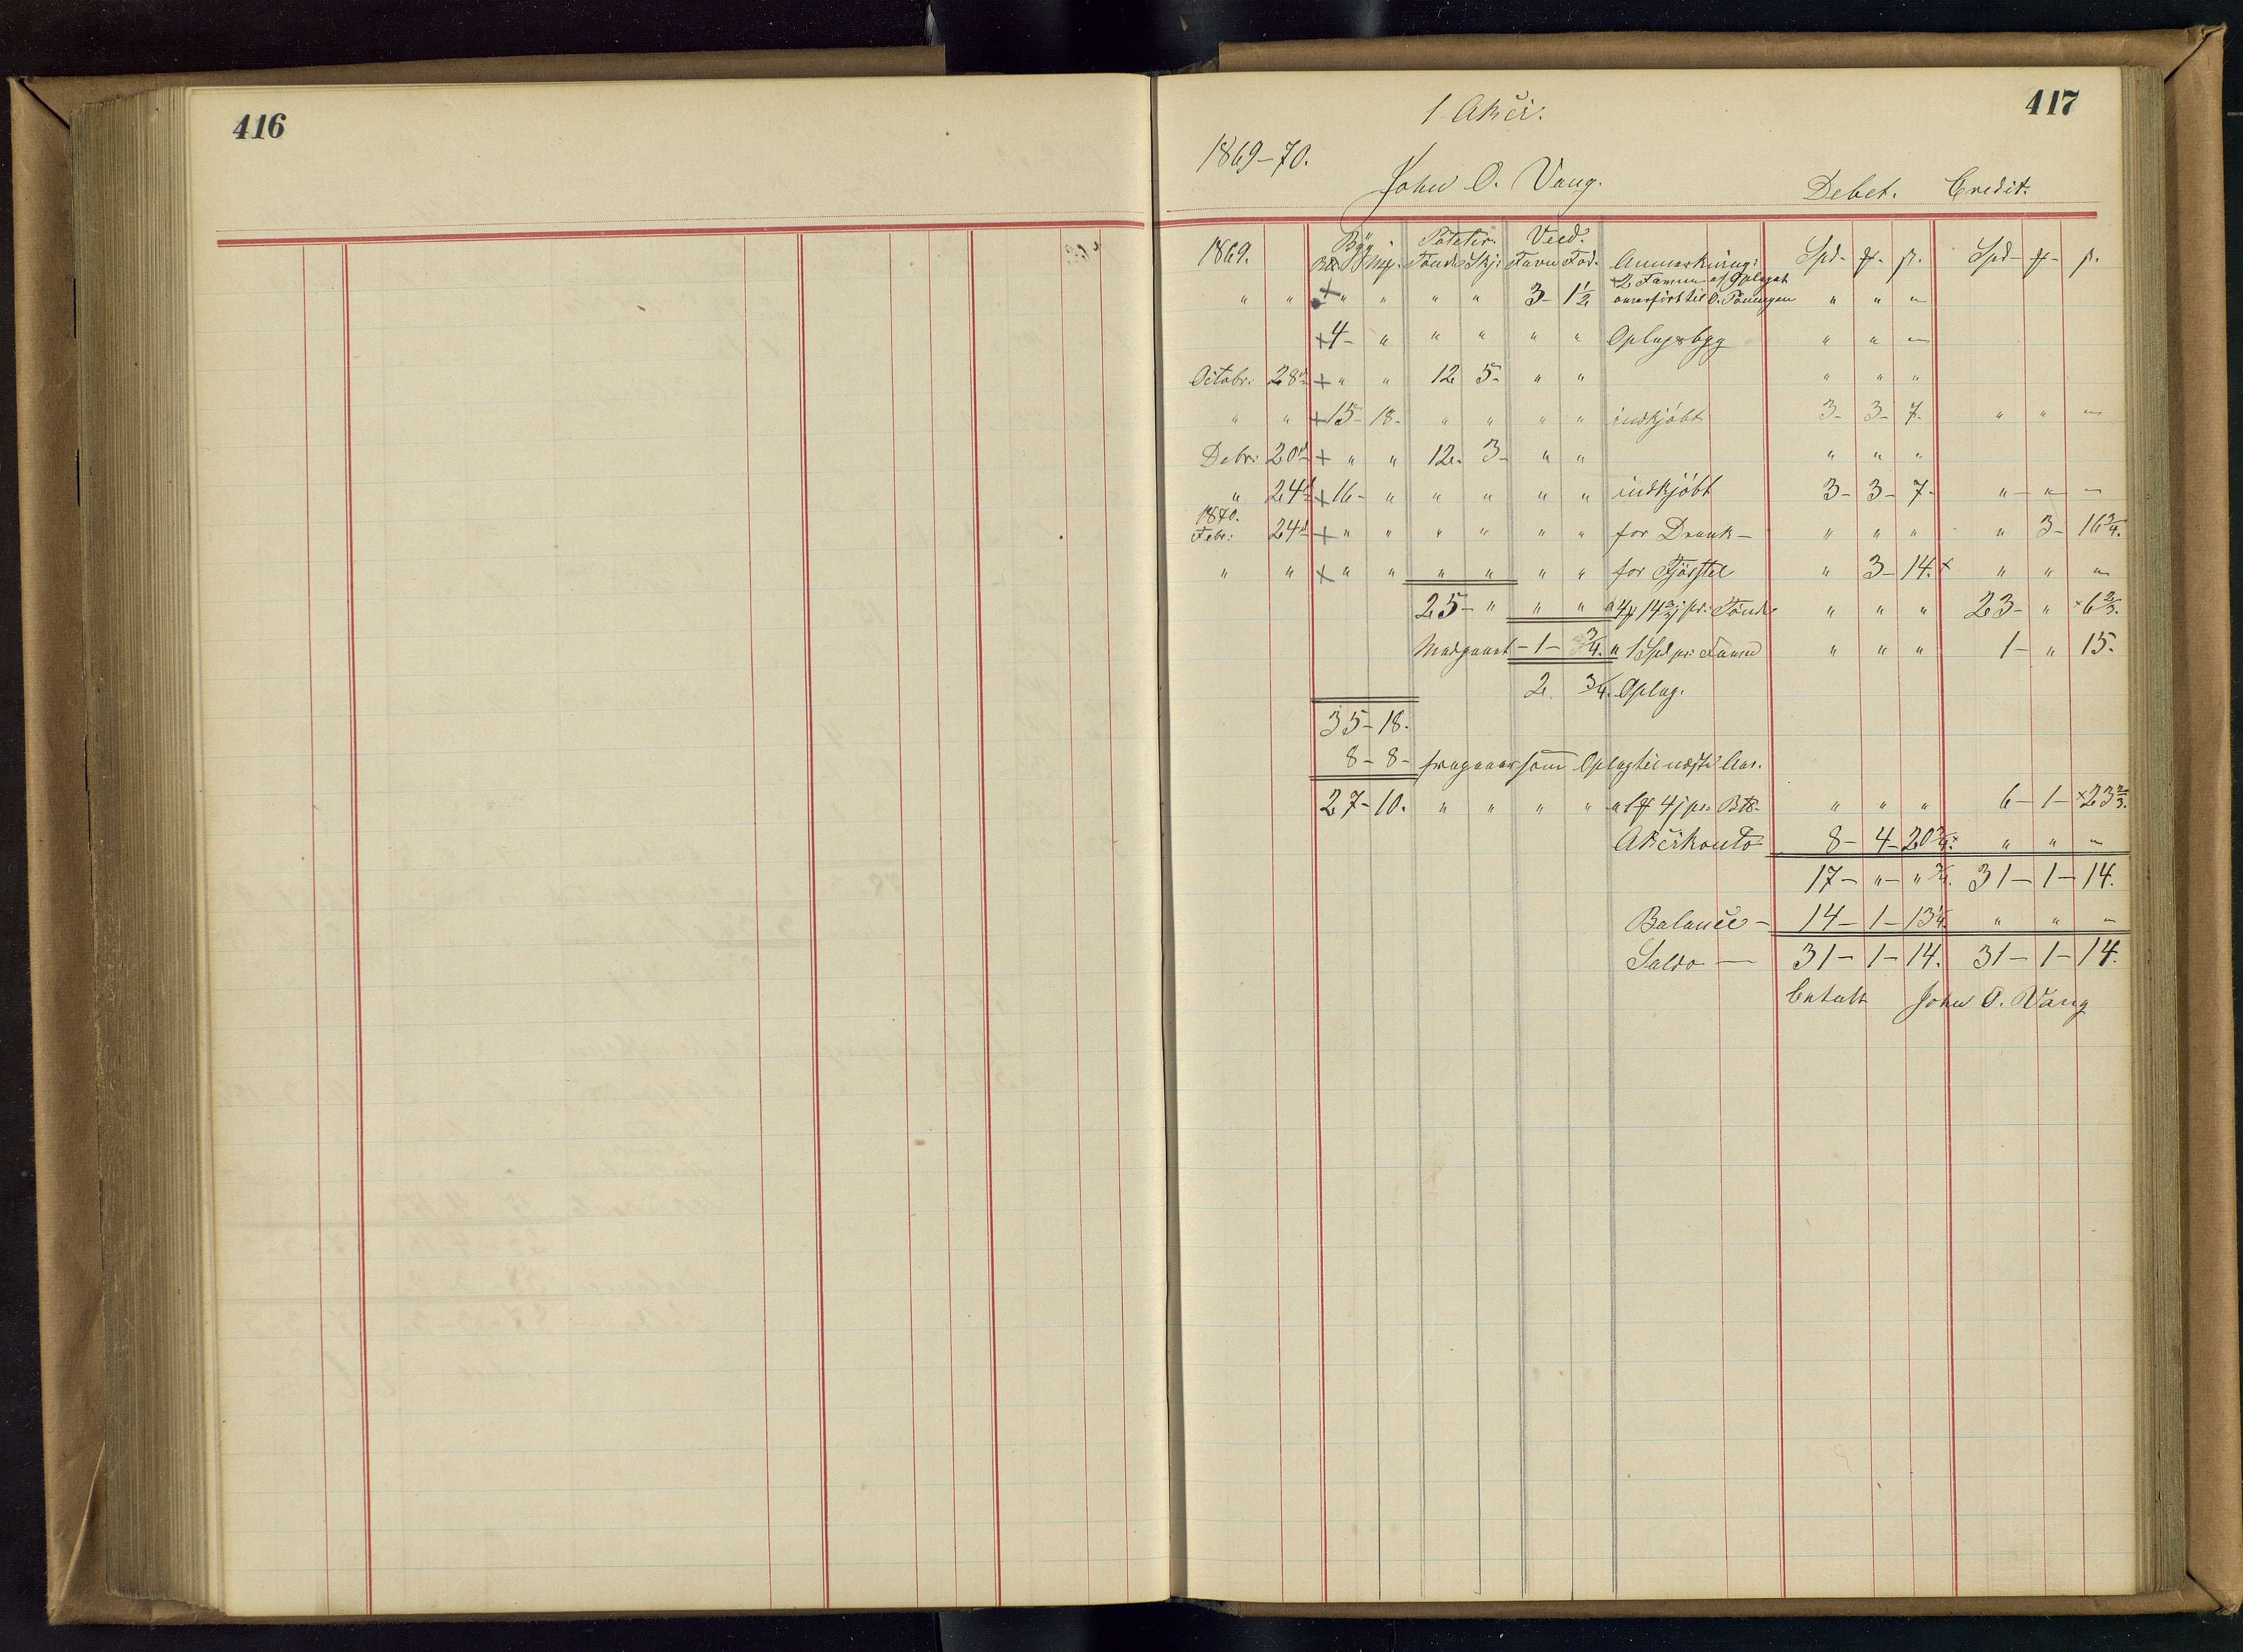 416
417
1 Akcie.
1869-70.
John O. Vang.
Debet. Credit.
1869. Byg. Poteter. Veed.
Mp. Tønde Skj: Favn Fod. Anmærkning: Spd- β. Spd- β.
" " + " " " " 3- 1 1/2 2 Favnn af Oplaget
overført til O. " " "
+ 4- " " " " " Oplagsbyg " " "
Octobr: 28d + " " 12 5- " " " " "
" " + 15- 18- " " " " indkjøbt 3- 3- 7- " " "
Debr: 20d + " " 12- 3- " " " " "
" 24d + 16- " " " " " indkjøbt 3- 3- 7- " - " - "
1870.
Febr: 24d + " " " " " " for Drank- " " " " 3- 16 3/4.
" " + " " " " " " for " 3- 14. x " " "
25- " " " a 4 14 pr: Tønde " " " 23- " x 6 2/3.
Medgaaet - 1 - 3/4. a 1 Spd pr: Favn " " " 1- " 15.
2. 3/4. Oplag.
35- 18.
8- 8- fragaaer som Oplag til næste Aar.
27- 10. " " " " a 1 4 pr: " " " 6- 1- x 23 2/3.
Akciekonto 8- 4- 20 3/4. x " " "
17- " - " 3/4. 31- 1- 14.
Balance - 14- 1- 13 1/4. " " "
Saldo - 31- 1- 14. 31- 1- 14.
betalt John O. Vang